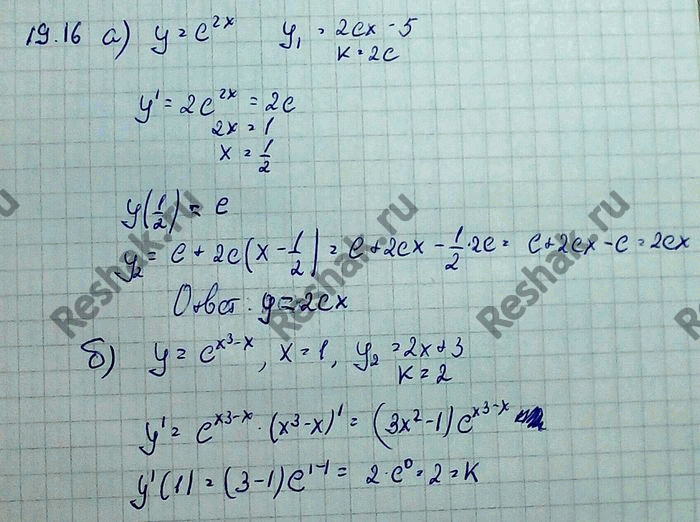 19.16 а) y = e^{2x}   y₁ = 2ex - 5
k = 2e
y' = 2e^{2x} = 2e
2x = 1
x = 1/2
y(1/2) = e
y₂ = e + 2e(x - 1/2) = e + 2ex - 1/2 · 2e = e + 2ex - e = 2ex
Ответ: y = 2ex
б) y = e^{x³-x}, x = 1, y₂ = 2x + 3
k = 2
y' = e^{x³-x} · (x³-x)' = (3x²-1)e^{x³-x}
y'(1) = (3-1)e^{1-1} = 2·e⁰ = 2 = k
Reshak.ru
Reshak.ru
Reshak.ru